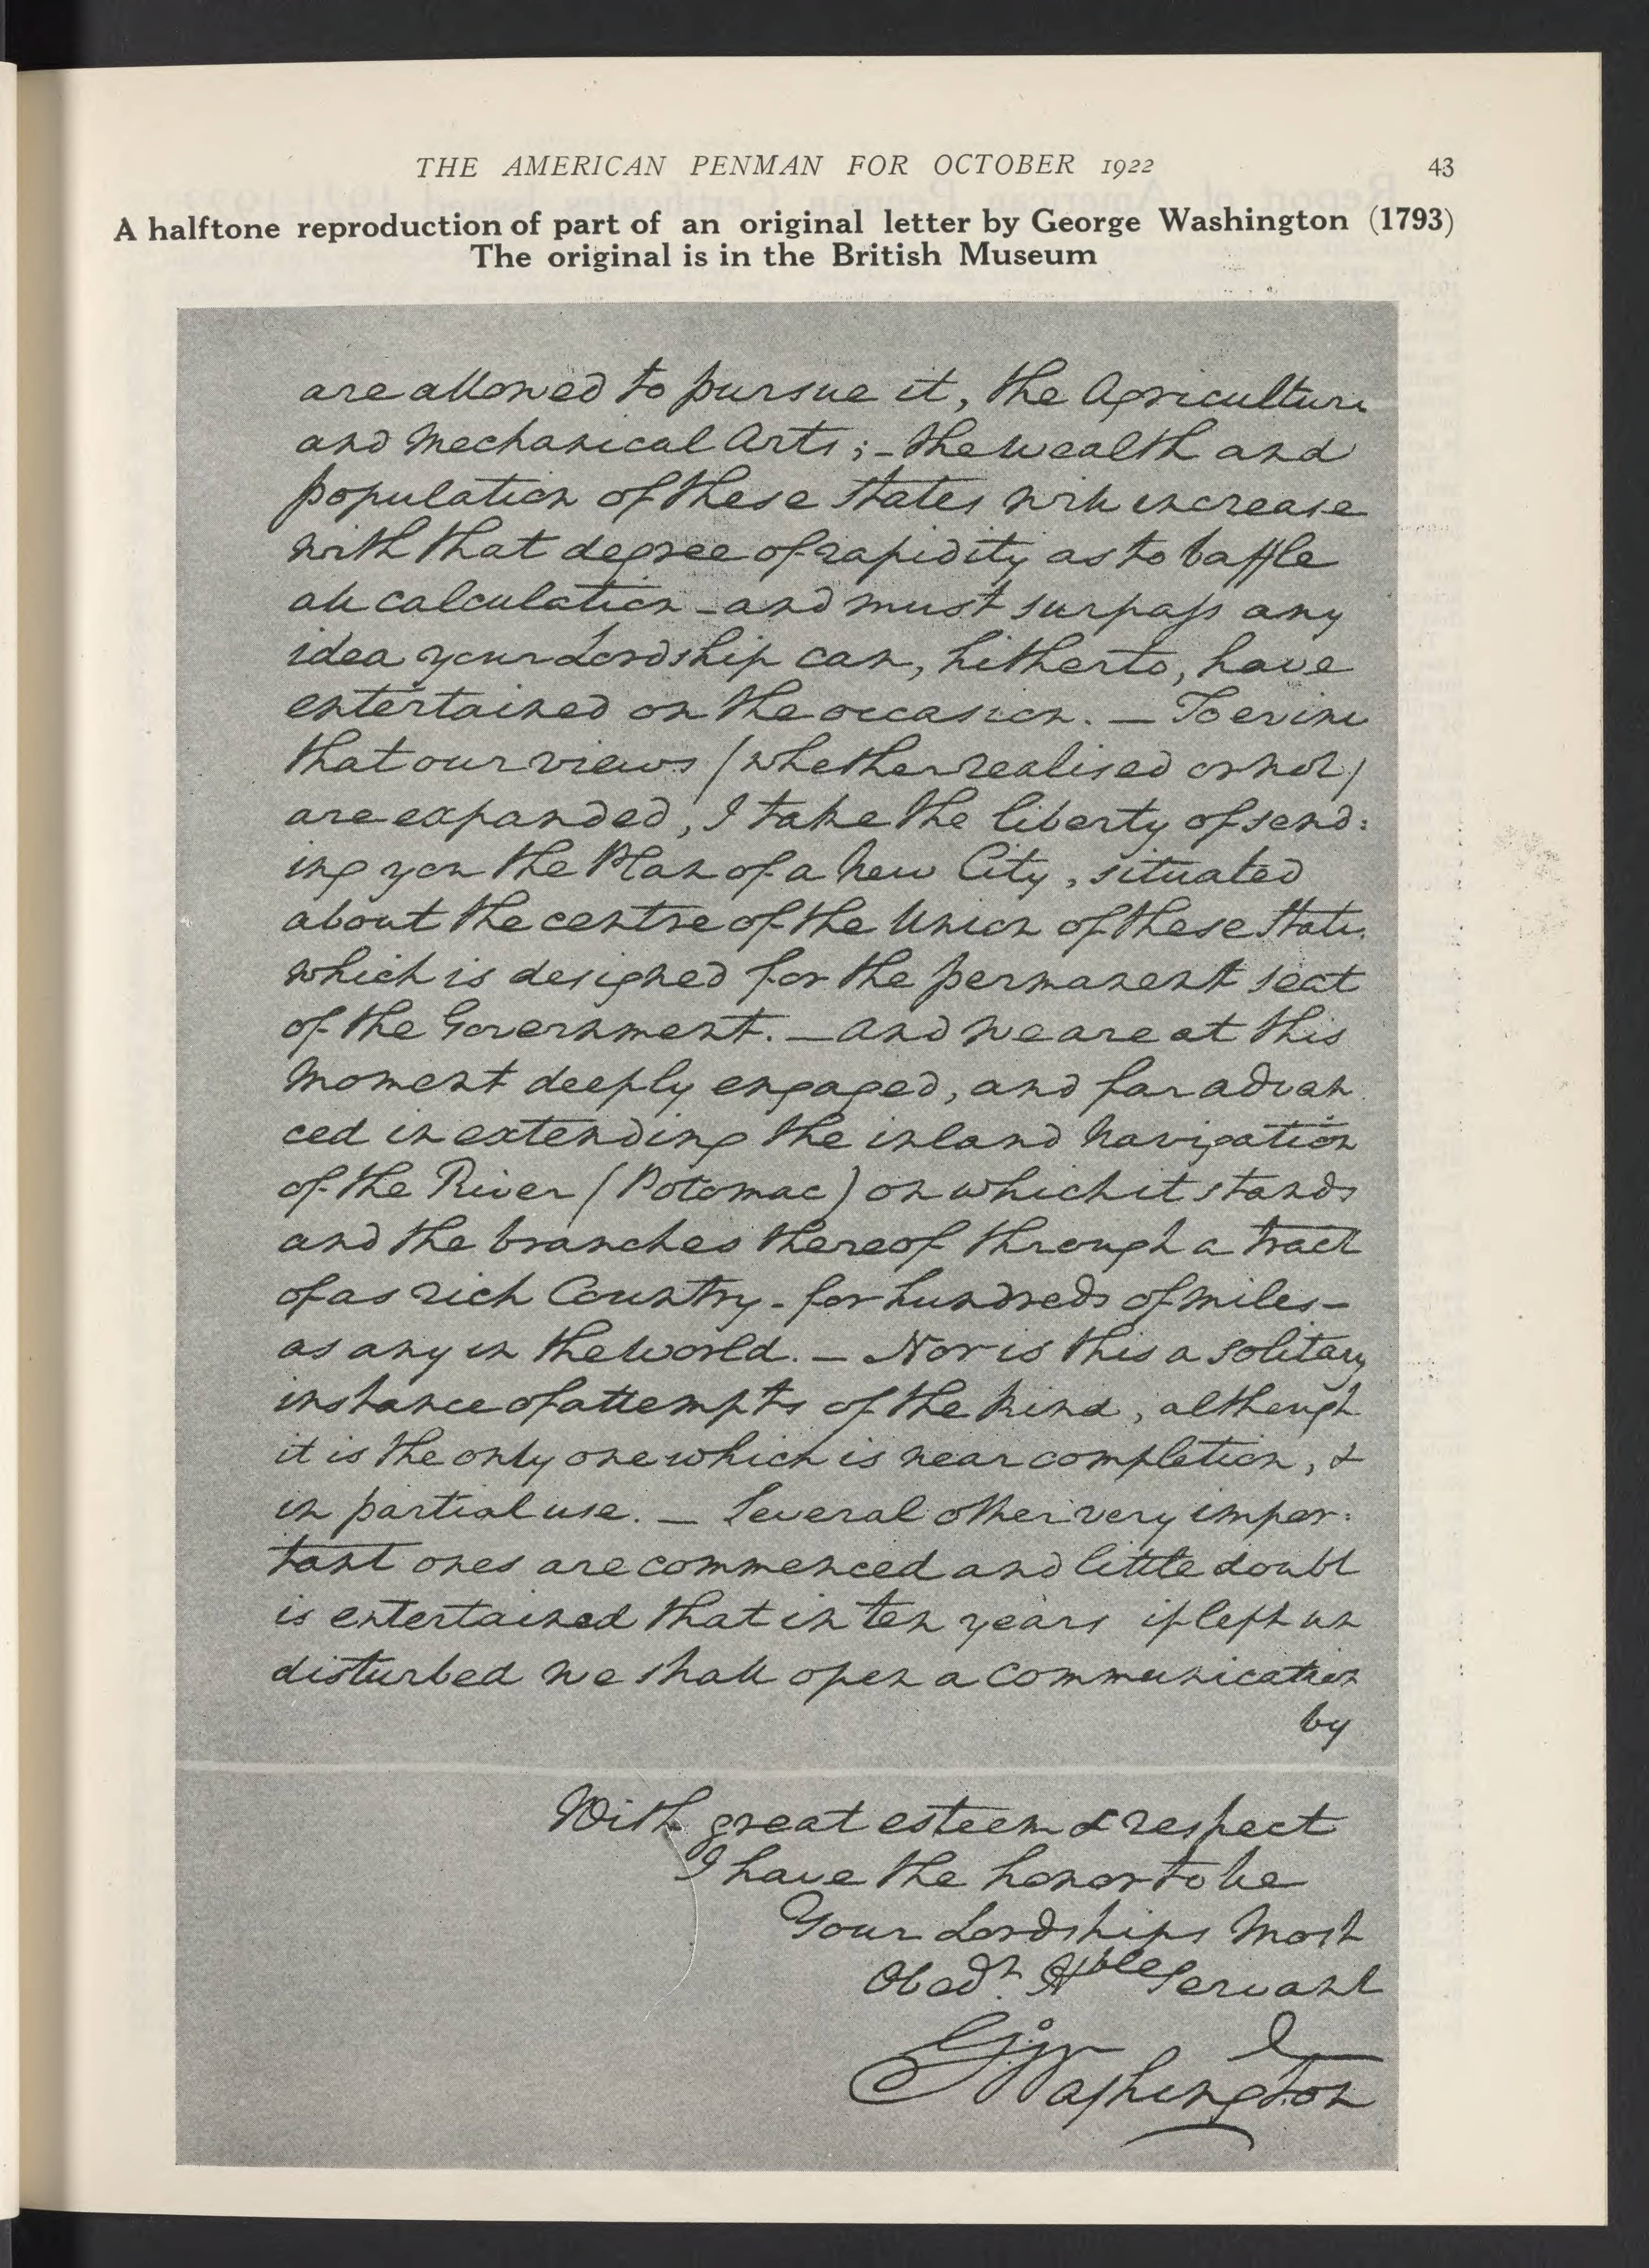 THE AMERICAN PENMAN FOR OCTOBER 1922 43
A halftone reproduction of part of an original letter by George Washington (1793)
The original is in the British Museum
are allowed to pursue it, the Agriculture
and Mechanical Arts ; - the wealth and
population of these States will increase
with that degree of rapidity as to baffle
all calculation - and must surpass any
idea your Lordship can, hitherto, have
entertained on the occasion. — To evince
that our views (whether realised or not)
are expanded, I take the liberty of send:
ing you the Plan of a New City, situated
about the centre of the Union of these States
which is designed for the permanent seat
of the Government. — And we are at this
moment deeply engaged, and far advan
ced in extending the inland Navigation
of the River (Potomac) on which it stands
and the branches thereof through a tract
of as rich Country - for hundreds of miles -
as any in the World. — Nor is this a solitary
instance of attempts of the kind, although
it is the only one which is near completion, &
in partial use. — Several other very impor:
tant ones are commenced and little doubt
is entertained that in ten years if left un
disturbed we shall open a communication
by
With great esteem & respect
I have the honor to be
Your Lordships Most
Obedt. Hble Servant
Go Washington